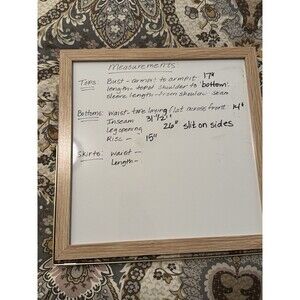 Measurements
Tops: Bust - armpit to armpit: 17"
length - top of shoulder to bottom:
sleeve length - from shoulder seam
Bottoms: Waist - tape laying flat across front 14"
Inseam 31 1/2"
Leg opening 26" slit on sides
Rise - 15"
Skirts: Waist -
Length -